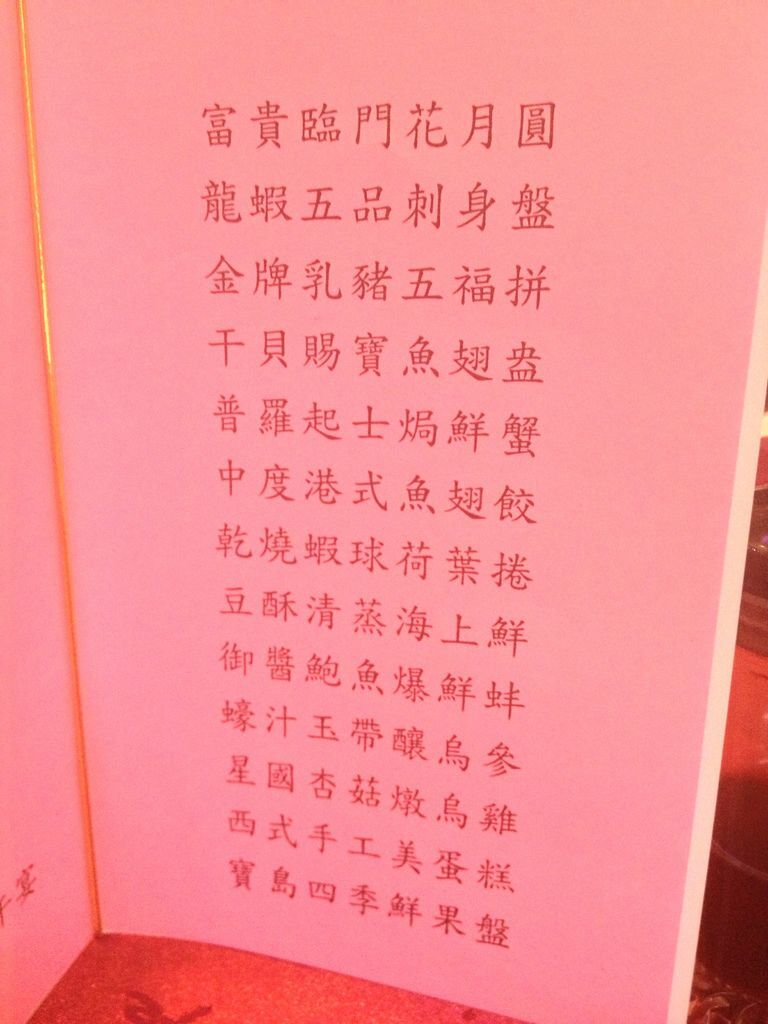 富貴臨門花月圓
龍蝦五品刺身盤
金牌乳豬五福拼
干貝賜寶魚翅盎
普羅起士焗鮮蟹
中度港式魚翅餃
乾燒蝦球荷葉捲
豆酥清蒸海上鮮
御醬鮑魚爆鮮蚌
蠔汁玉帶釀烏參
星國杏菇燉烏雞
西式手工美蛋糕
寶島四季鮮果盤
宴